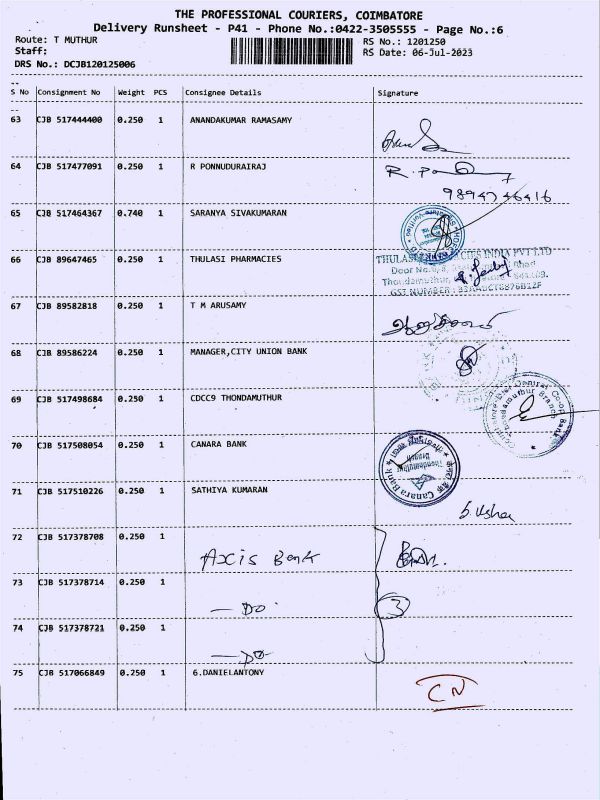 THE PROFESSIONAL COURIERS, COIMBATORE
Delivery Runsheet - P41 - Phone No.:0422-3505555 - Page No.:6
Route: T MUTHUR RS No.: 1201250
Staff: RS Date: 06-Jul-2023
DRS No.: DCJB120125006
S No Consignment No Weight PCS Consignee Details Signature
63 CJB 517444400 0.250 1 ANANDAKUMAR RAMASAMY
64 CJB 517477091 0.250 1 R PONNUDURAIRAJ
65 CJB 517464367 0.740 1 SARANYA SIVAKUMARAN
66 CJB 89647465 0.250 1 THULASI PHARMACIES
THULASI INDIA PVT LTD
Door No.
Thondamuthur,
GST NUMBER :
67 CJB 89582818 0.250 1 T M ARUSAMY
68 CJB 89586224 0.250 1 MANAGER,CITY UNION BANK
69 CJB 517498684 0.250 1 CDCC9 THONDAMUTHUR
Thondamuthur Branch
70 CJB 517508054 0.250 1 CANARA BANK
Canara Bank
Thondamuthur
Branch
71 CJB 517510226 0.250 1 SATHIYA KUMARAN
S. Usha
72 CJB 517378708 0.250 1 Axis Bank
73 CJB 517378714 0.250 1 — DO 3
74 CJB 517378721 0.250 1 — DO
75 CJB 517066849 0.250 1 G.DANIELANTONY CN